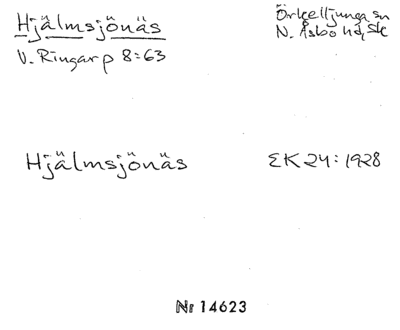 Hjälmsjönäs
Örkelljunga sn
N. Åsbo hd, Sk
V. Ringarp 8:63
Hjälmsjönäs
EK 24:1928
Nr 14623